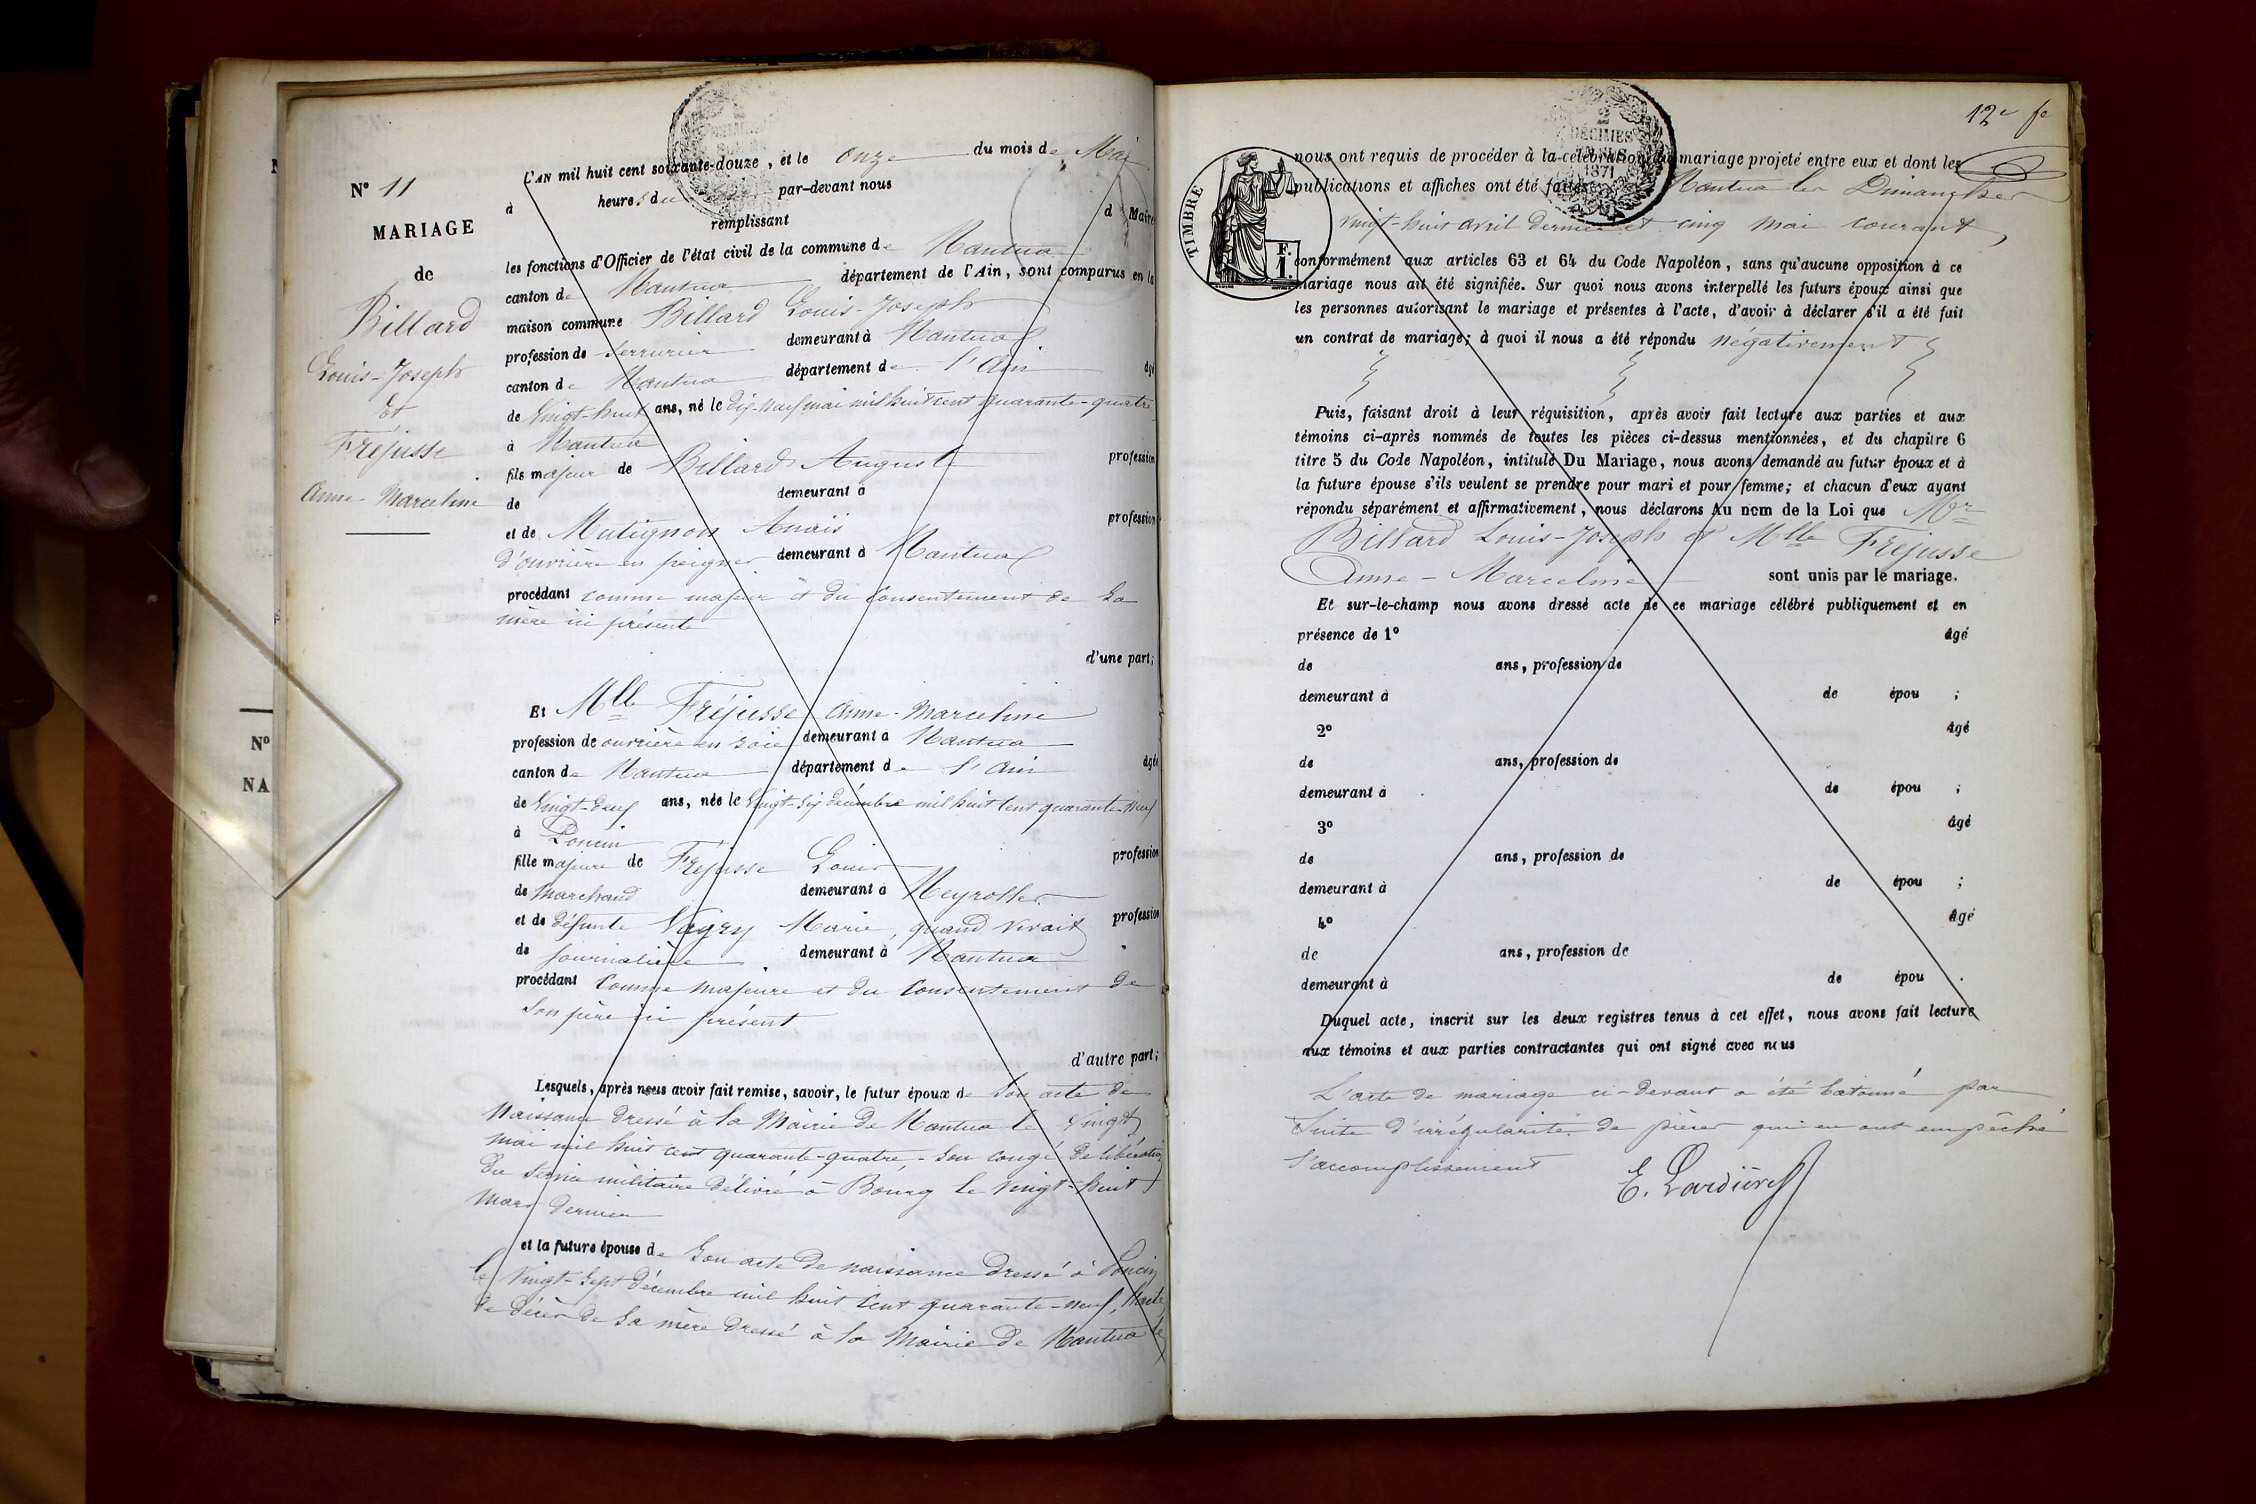 N° 11
MARIAGE
de
Billard
Louis-Joseph
et
Fréjusse
Anne-Marceline
L'AN mil huit cent soixante-douze, et le onze du mois de Mai
à heures du par-devant nous
remplissant d Maire
les fonctions d'Officier de l'état civil de la commune de Nantua
canton de Nantua département de l'Ain, sont comparus en la
maison commune Billard Louis-Joseph
profession de Serrurier demeurant à Nantua
canton de Nantua département de l'Ain âgé
de Vingt-huit ans, né le dix-neuf mai mil huit cent quarante-quatre
à Nantua
fils majeur de Billard August profession
de demeurant à
et de Matignon Anaïs profession
d'ouvrière en peignes demeurant à Nantua
procédant comme majeur et du consentement de sa
mère ici présente
d'une part;
Et Mlle Fréjusse Anne-Marceline
profession de ouvrière en soie demeurant à Nantua
canton de Nantua département de l'Ain âgée
de Vingt-deux ans, née le Vingt-six décembre mil huit cent quarante-neuf
à Poncin
fille majeure de Fréjusse Louis profession
de Marchand demeurant à Neyrolles
et de défunte Vugey Marie, quand vivait profession
de journalière demeurant à Nantua
procédant comme majeure et du consentement de
son père ici présent
d'autre part;
Lesquels, après nous avoir fait remise, savoir, le futur époux de son acte de
naissance dressé à la Mairie de Nantua le vingt
mai mil huit cent quarante-quatre, son congé de libération
du service militaire délivré à Bourg le vingt-huit
mars dernier
et la future épouse de son acte de naissance dressé à Poncin
le vingt-sept décembre mil huit cent quarante-neuf, l'acte
de décès de sa mère dressé à la Mairie de Nantua le
12e fe
2
DÉCIMES
EN SUS
1871
TIMBRE
F.
1.
nous ont requis de procéder à la célébration du mariage projeté entre eux et dont les
publications et affiches ont été faites Nantua les Dimanches
vingt-huit avril dernier et cinq mai courant,
conformément aux articles 63 et 64 du Code Napoléon, sans qu'aucune opposition à ce
mariage nous ait été signifiée. Sur quoi nous avons interpellé les futurs époux ainsi que
les personnes autorisant le mariage et présentes à l'acte, d'avoir à déclarer s'il a été fait
un contrat de mariage; à quoi il nous a été répondu négativement
Puis, faisant droit à leur réquisition, après avoir fait lecture aux parties et aux
témoins ci-après nommés de toutes les pièces ci-dessus mentionnées, et du chapitre 6
titre 5 du Code Napoléon, intitulé Du Mariage, nous avons demandé au futur époux et à
la future épouse s'ils veulent se prendre pour mari et pour femme; et chacun d'eux ayant
répondu séparément et affirmativement, nous déclarons Au nom de la Loi que Mr
Billard Louis-Joseph et Mlle Fréjusse
Anne-Marceline sont unis par le mariage.
Et sur-le-champ nous avons dressé acte de ce mariage célébré publiquement et en
présence de 1° âgé
de ans, profession de
demeurant à de épou ;
2° âgé
de ans, profession de
demeurant à de épou ;
3° âgé
de ans, profession de
demeurant à de épou ;
4° âgé
de ans, profession de
demeurant à de épou .
Duquel acte, inscrit sur les deux registres tenus à cet effet, nous avons fait lecture
aux témoins et aux parties contractantes qui ont signé avec nous
L'acte de mariage ci-devant a été batonné par
suite d'irrégularité de pièces qui en ont empêché
l'accomplissement
E. Lardière
N°
NA